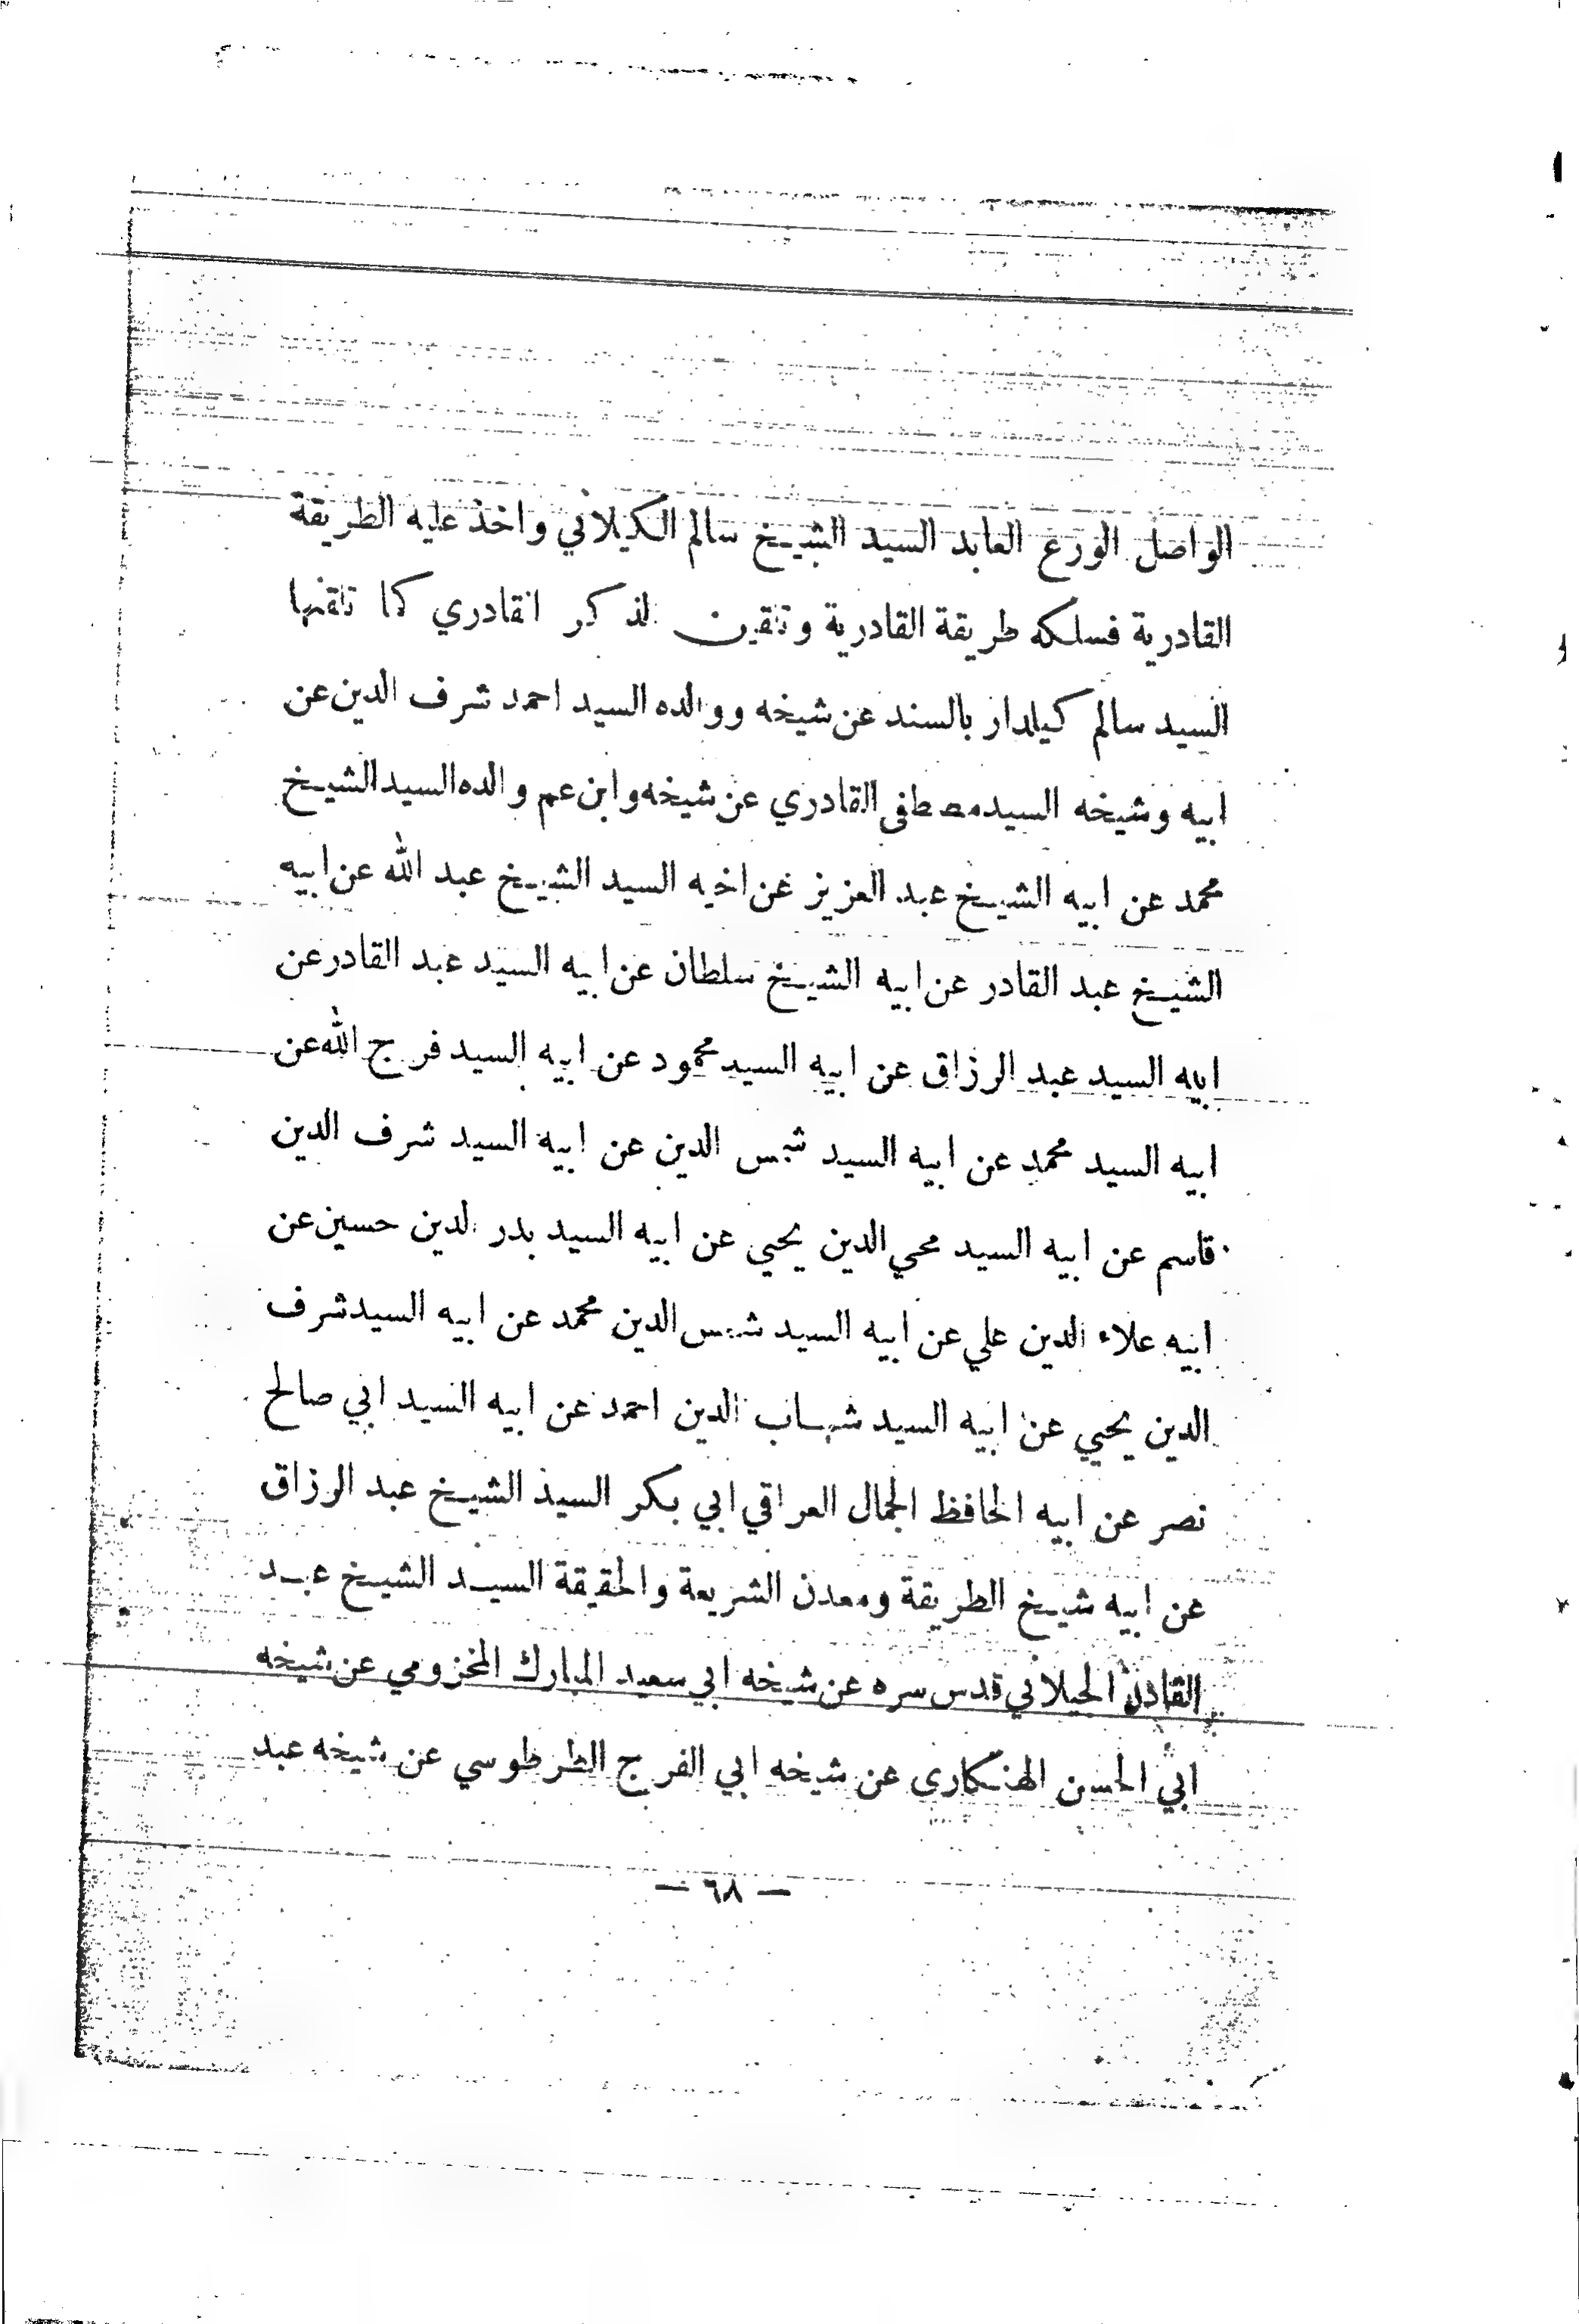 الواصل الورع العابد السيد الشيخ سالم الكيلاني واخذ عليه الطريقة
القادرية فسلكه طريقة القادرية وتلقين الذكر القادري كما تلقنها
السيد سالم كيلدار بالسند عن شيخه ووالده السيد احمد شرف الدين عن
ابيه وشيخه السيد مصطفى القادري عن شيخه وابن عم والده السيد الشيخ
محمد عن ابيه الشيخ عبد العزيز عن اخيه السيد الشيخ عبد الله عن ابيه
الشيخ عبد القادر عن ابيه الشيخ سلطان عن ابيه السيد عبد القادر عن
ابيه السيد عبد الرزاق عن ابيه السيد محمود عن ابيه السيد فرج الله عن
ابيه السيد محمد عن ابيه السيد شمس الدين عن ابيه السيد شرف الدين
قاسم عن ابيه السيد محي الدين يحيي عن ابيه السيد بدر الدين حسين عن
ابيه علاء الدين علي عن ابيه السيد شمس الدين محمد عن ابيه السيد شرف
الدين يحيي عن ابيه السيد شهاب الدين احمد عن ابيه السيد ابي صالح
نصر عن ابيه الحافظ الجمال العراقي ابي بكر السيد الشيخ عبد الرزاق
عن ابيه شيخ الطريقة ومعدن الشريعة والحقيقة السيد الشيخ عبد
القادر الجيلاني قدس سره عن شيخه ابي سعيد المبارك المخزومي عن شيخه
ابي الحسن الهنكاري عن شيخه ابي الفرج الطرطوسي عن شيخه عبد
— ٦٨ —